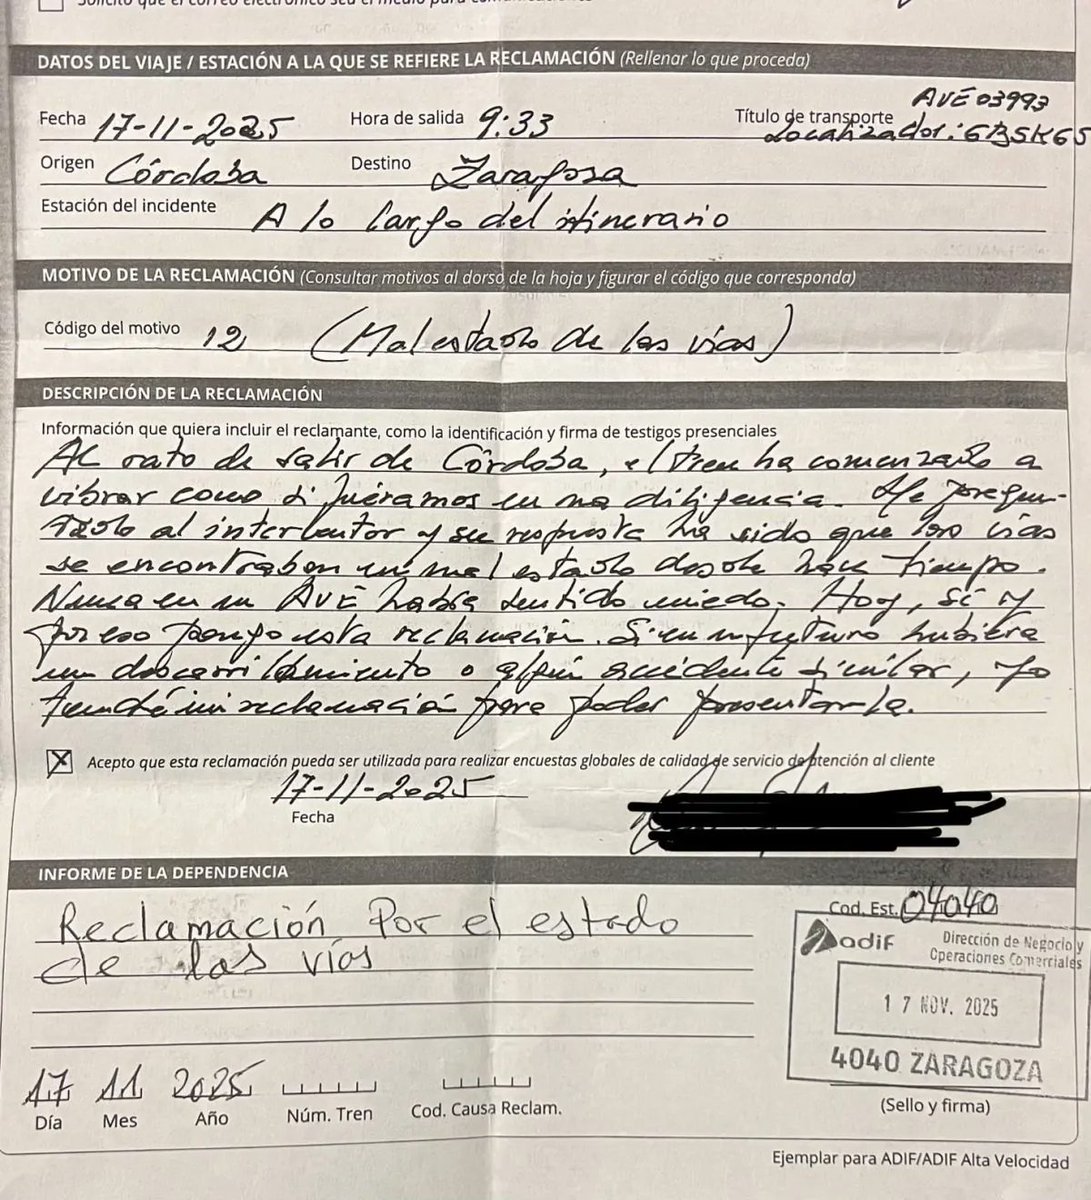 Solicito que el correo electrónico sea el medio para
DATOS DEL VIAJE / ESTACIÓN A LA QUE SE REFIERE LA RECLAMACIÓN (Rellenar lo que proceda)
Fecha 17-11-2025 Hora de salida 9:33 Título de transporte AVE 03993
Localizador: 6BSK65
Origen Córdoba Destino Zaragoza
Estación del incidente A lo largo del itinerario
MOTIVO DE LA RECLAMACIÓN (Consultar motivos al dorso de la hoja y figurar el código que corresponda)
Código del motivo 12 (Mal estado de las vías)
DESCRIPCIÓN DE LA RECLAMACIÓN
Información que quiera incluir el reclamante, como la identificación y firma de testigos presenciales
Al rato de salir de Córdoba, el tren ha comenzado a
vibrar como si fuéramos en una diligencia. He pregun-
tado al interventor y su respuesta ha sido que las vías
se encontraban en mal estado desde hace tiempo.
Nunca en un AVE había sentido miedo. Hoy, sí y
por eso pongo esta reclamación. Si en un futuro hubiera
un descarrilamiento o algún accidente similar, yo
tendré mi reclamación para poder presentarla.
Acepto que esta reclamación pueda ser utilizada para realizar encuestas globales de calidad de servicio de atención al cliente
17-11-2025
Fecha
INFORME DE LA DEPENDENCIA
Reclamación Por el estado
de las vías
Cod. Est. 04040
adif Dirección de Negocio y
Operaciones Comerciales
17 NOV. 2025
4040 ZARAGOZA
(Sello y firma)
17 11 2025
Día Mes Año Núm. Tren Cod. Causa Reclam.
Ejemplar para ADIF/ADIF Alta Velocidad